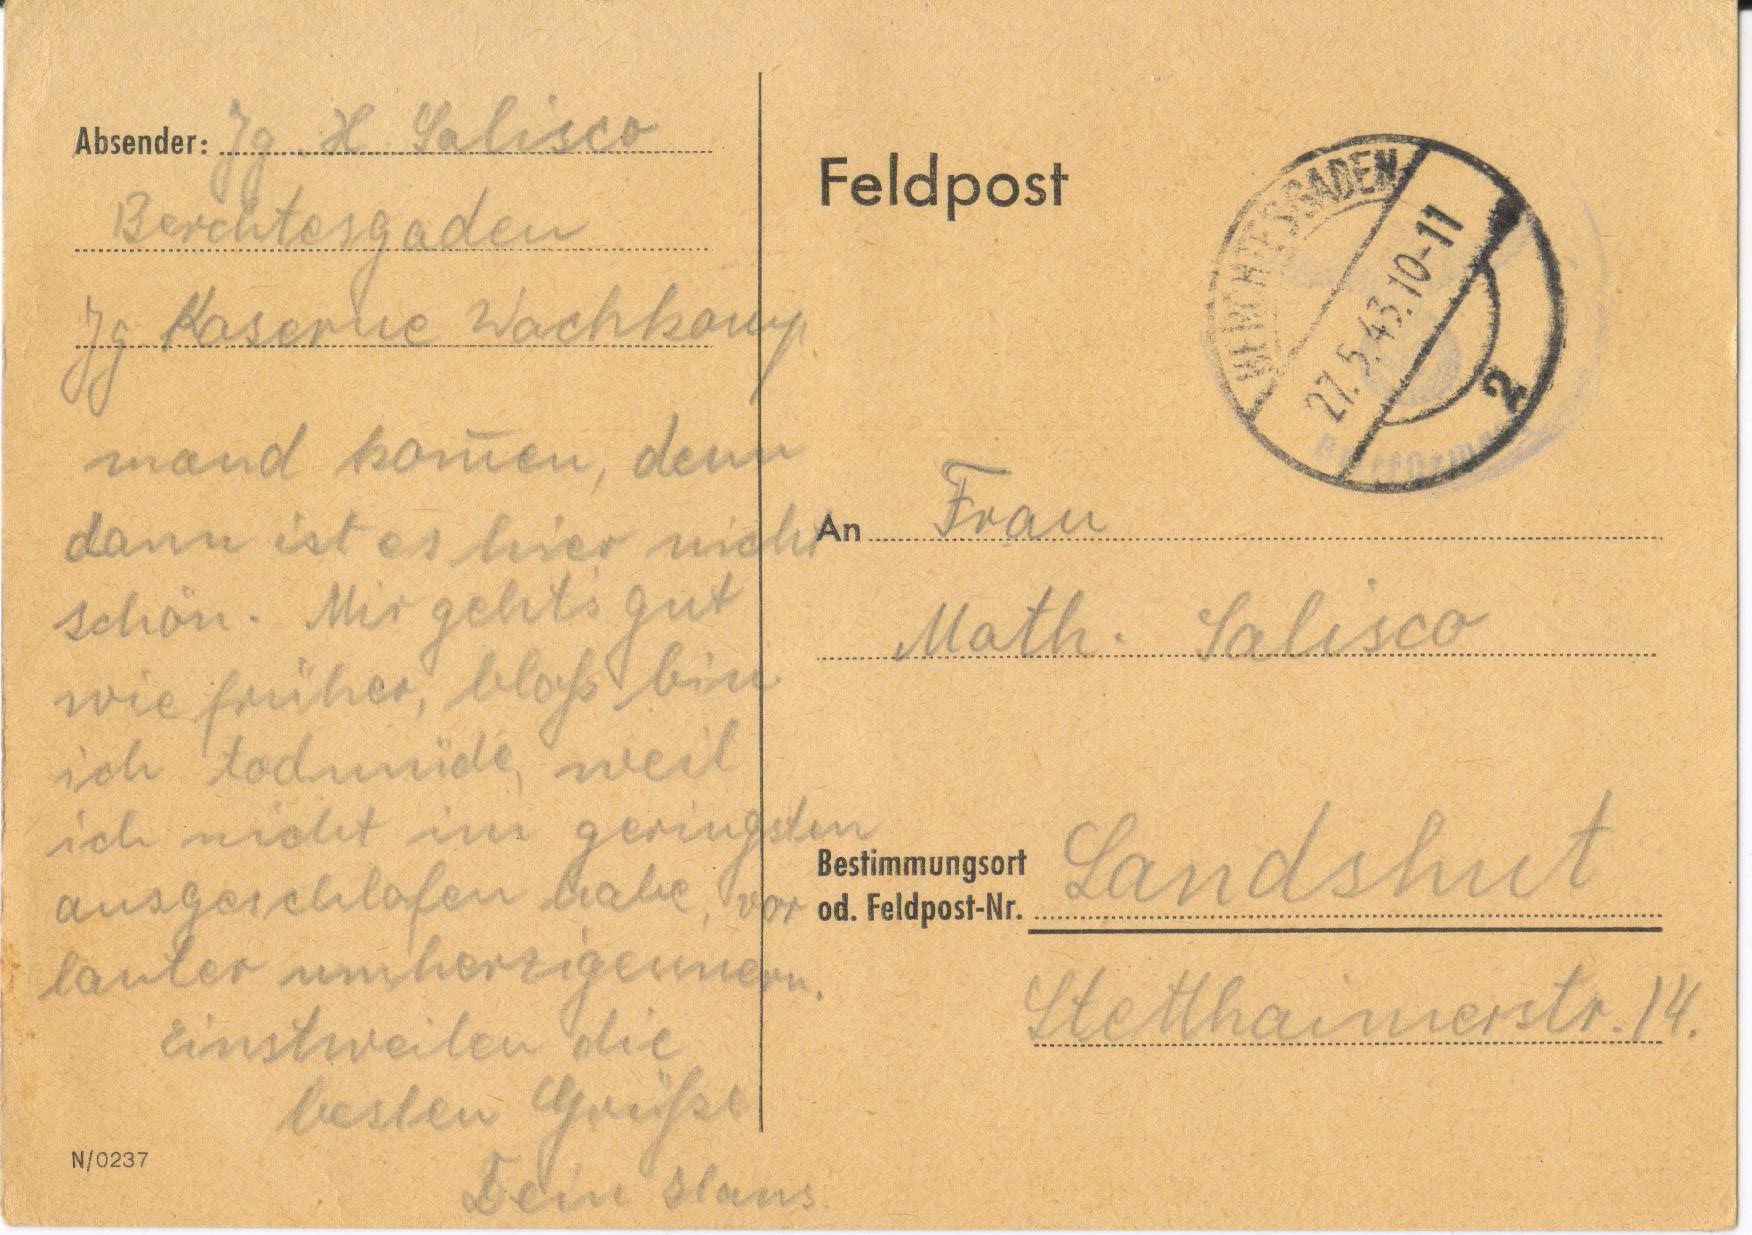 Absender: Jg. H Salisco
Berchtesgaden
Jg. Kaserne Wachkomp.
mand kom̄en, denn
dann ist es hier nicht
schön. Mir gehts gut
wie früher, bloß bin
ich todmüde, weil
ich nicht im geringsten
ausgeschlafen habe, vor
lauter umherzigeunern.
Einstweilen die
besten Grüße
Dein Hans.
N/0237
Feldpost
BERCHTESGADEN
27.5.43.10-11
2
An Frau
Math. Salisco
Bestimmungsort
od. Feldpost-Nr. Landshut
Stetthaimerstr. 14.